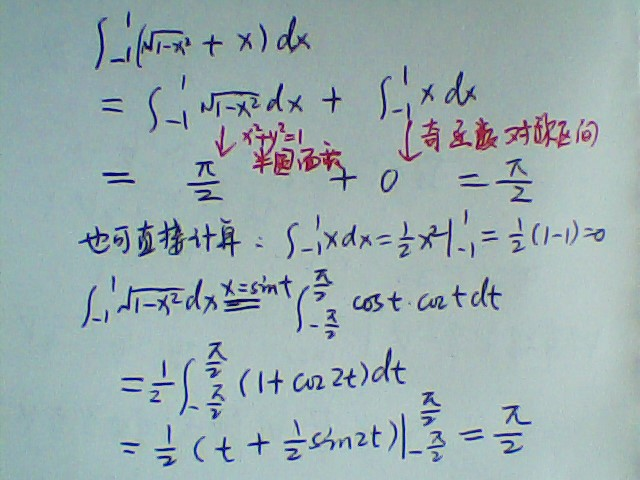 ∫₋₁¹(√1-x² + x) dx
= ∫₋₁¹ √1-x² dx + ∫₋₁¹ x dx
↓ x²+y²=1 半圆面积 ↓ 奇函数 对称区间
= π/2 + 0 = π/2
也可直接计算: ∫₋₁¹ x dx = 1/2 x² |₋₁¹ = 1/2 (1-1)=0
∫₋₁¹ √1-x² dx x=sint = ∫_{-π/2}^{π/2} cost · cost dt
= 1/2 ∫_{-π/2}^{π/2} (1+cos2t)dt
= 1/2 (t + 1/2 sin2t)|_{-π/2}^{π/2} = π/2